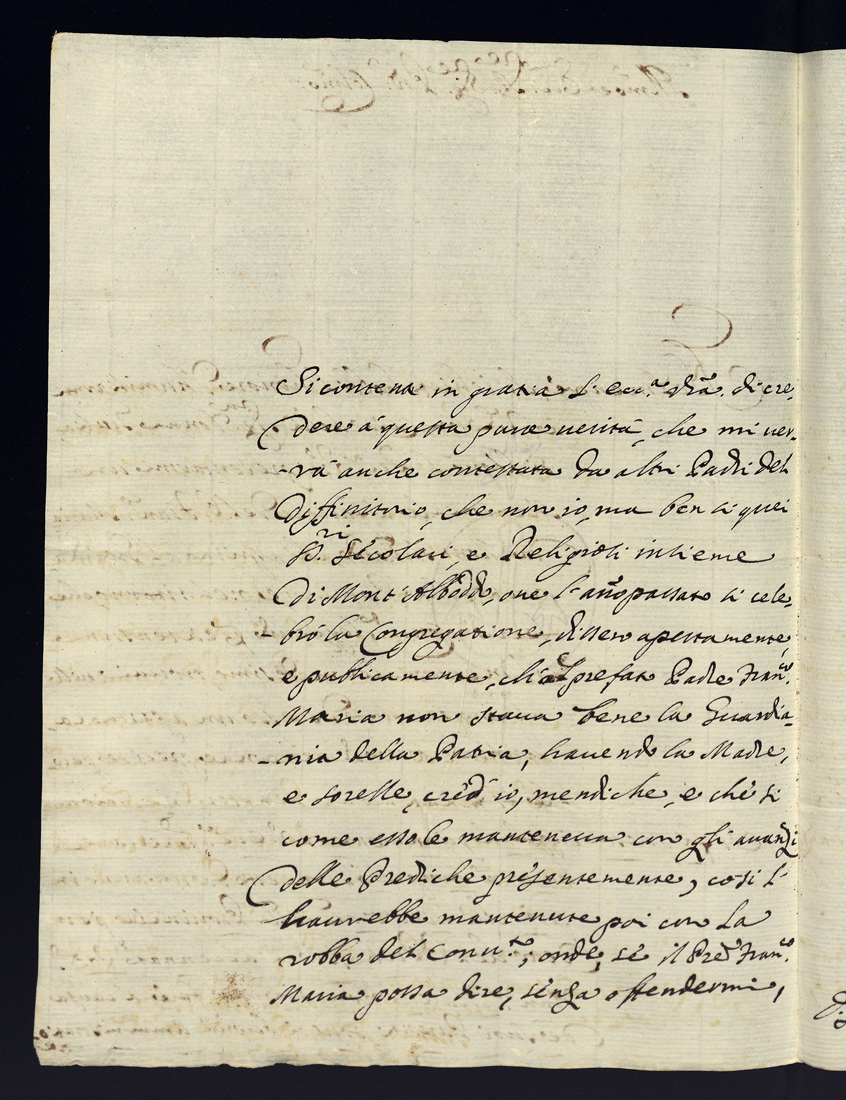 Si contenti in gratia l'ecc.ª vrã. di cre-
dere à questa pura verità, che mi ver-
-rà anche contestata da altri Padri del
Diffinitorio, che non io, ma ben sì quei
SS.ri Secolari, e Religiosi insieme
Di Mont'Albodd.º, oue l'año passato si cele-
-brò la Congregatione, dissero apertamente,
e publicamente, ch'al prefat.º Padre Fran.co
Maria non staua bene la Guardia-
-nia della Patria, hauendo la Madre,
e sorelle, cred'io, mendiche, e che si
come esso le manteneua con gli auanzi
delle Prediche presentemente, così l'
haurebbe mantenute poi con la
robba del Conu.to; onde, se il Prẽ Fran.co
Maria possa dire, senza offendermi,